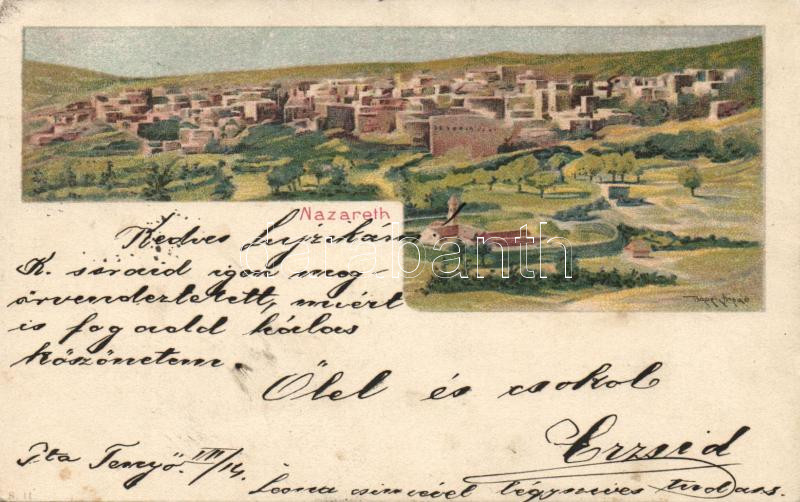 Nazareth
Kedves Lujzikám
K. soraid igen meg-
örvendeztetett, miért
is fogadd hálás
köszönetem.
Ölel és csokol
Erzsid
P.ta Tenyő. III/14.
Leona címével légy szíves tudass.
darabanth
S. 11